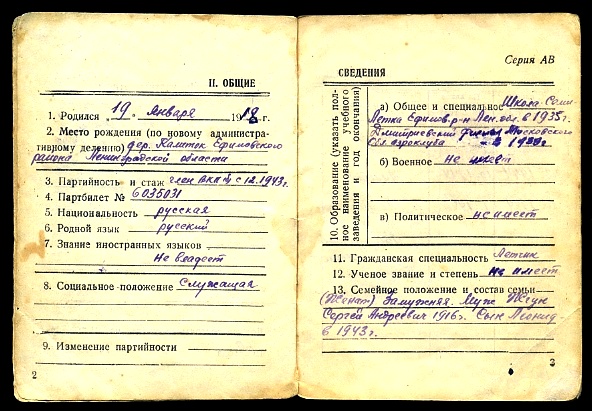 II. ОБЩИЕ
1. Родился „19" января 1918 г.
2. Место рождения (по новому администра-
тивному делению) дер. Ефимовского
района Ленинградской области
3. Партийность и стаж член ВКП(б) с 12.1943г.
4. Партбилет № 6035031
5. Национальность русская
6. Родной язык русский
7. Знание иностранных языков
не владеет
8. Социальное положение Служащая
9. Изменение партийности
2
Серия АВ
СВЕДЕНИЯ
10. Образование (указать пол-
ное наименование учебного
заведения и год окончания)
а) Общее и специальное Школа Семи-
летка Ефимов. р-н Лен. обл. в 1935г.
Дмитриевский Московского
аэроклуба 1939г
б) Военное не имеет
в) Политическое не имеет
11. Гражданская специальность Летчик
12. Ученое звание и степень не имеет
13. Семейное положение и состав семьи
(женат) Замужняя. Муж
Сергей Андреевич 1916г. Сын Леонид
в 1943г.
3